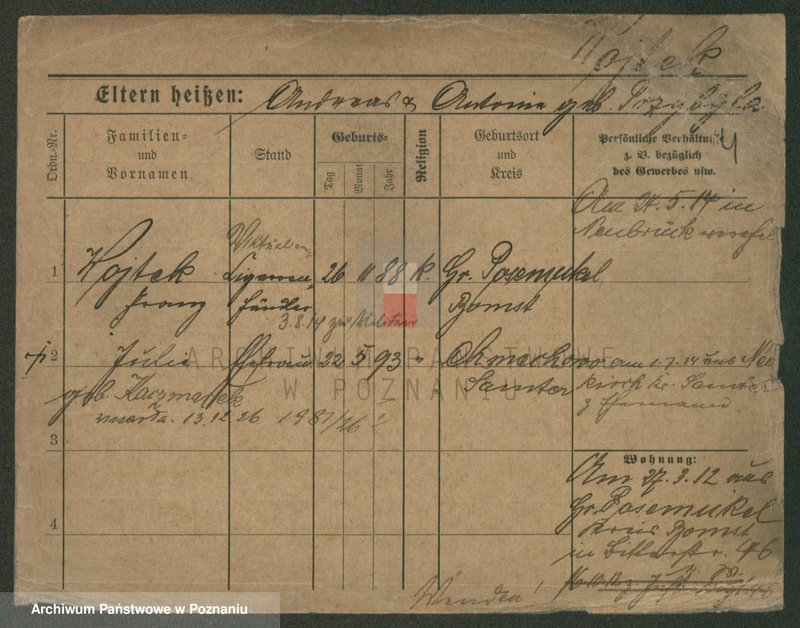 Wojtek
Eltern heißen: Andreas & Antonie geb. Przybyla
Ordn.-Nr.
Familien- und Vornamen
Stand
Geburts-
Tag
Monat
Jahr
Religion
Geburtsort und Kreis
Persönliche Verhältni
z. B. bezüglich
des Gewerbes usw.
Am 24.5.14 in
Neubrück
1
Wojtek
Franz
Viktualien
Cigarren
händler
26 11 88 k.
Gr. Posemukel
Bomst
3.8.14 zum Militär
2
Julie
geb. Kaczmarek
Ehefrau
22 5 93 "
Chmerkowo
Samter
Am 1.7.14 aus Neu
kirch Kr. Samter
z. Ehemann
zmarła. 13.12.26 1981/26
3
4
Wohnung:
Am 27.3.12 aus
Gr. Posemukel
Kreis Bomst
in
46
Wenden!
ARCHIWUM PAŃSTWOWE
W POZNANIU
Archiwum Państwowe w Poznaniu